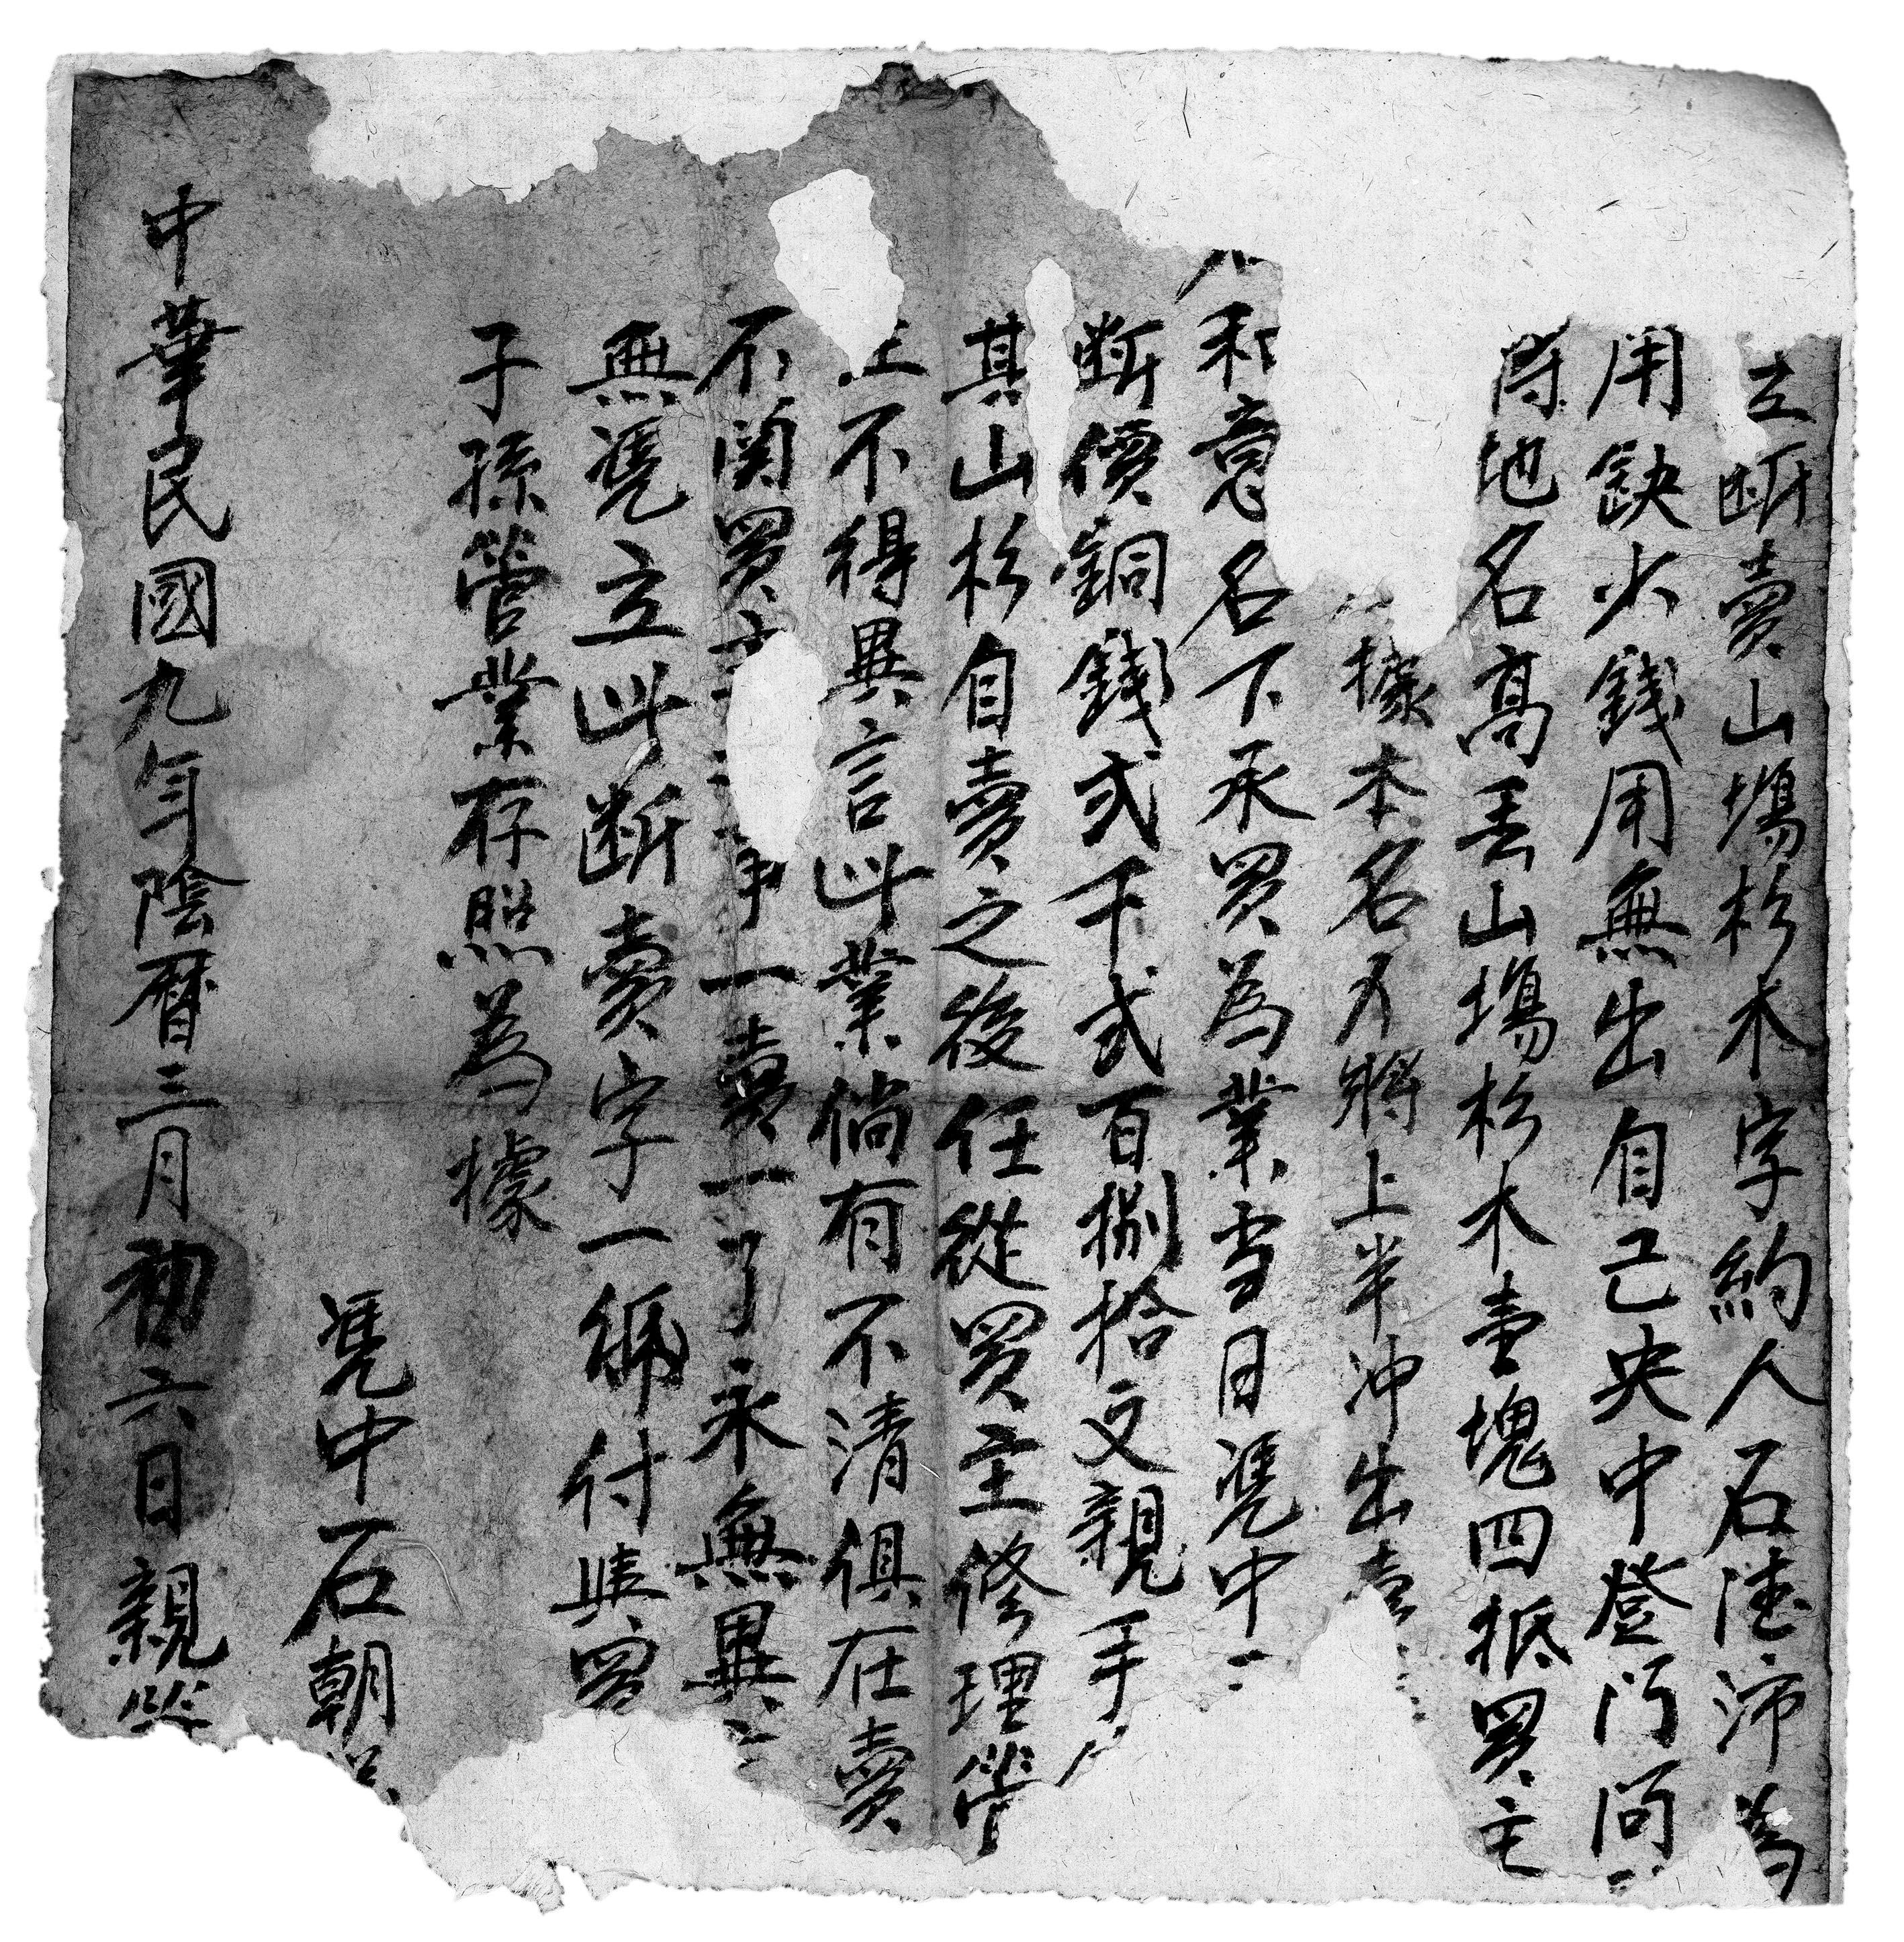 立断賣山塲杉木字約人石陸沛為
用缺少錢用無出自己央中登门问
得地名髙丢山塲杉木壹塊四抵買主
據本名下將上半冲出
和意名下承買為業当日凴中
断價銅錢弍千弍百捌拾文親手
其山杉自賣之後任從買主修理管
不得異言此業倘有不清俱在賣
不関買主之事一賣一了永無異
無凴立此断賣字一紙付與買
子孫管業存照為據
凴中石朝
中華民國九年陰暦三月初六日親筆